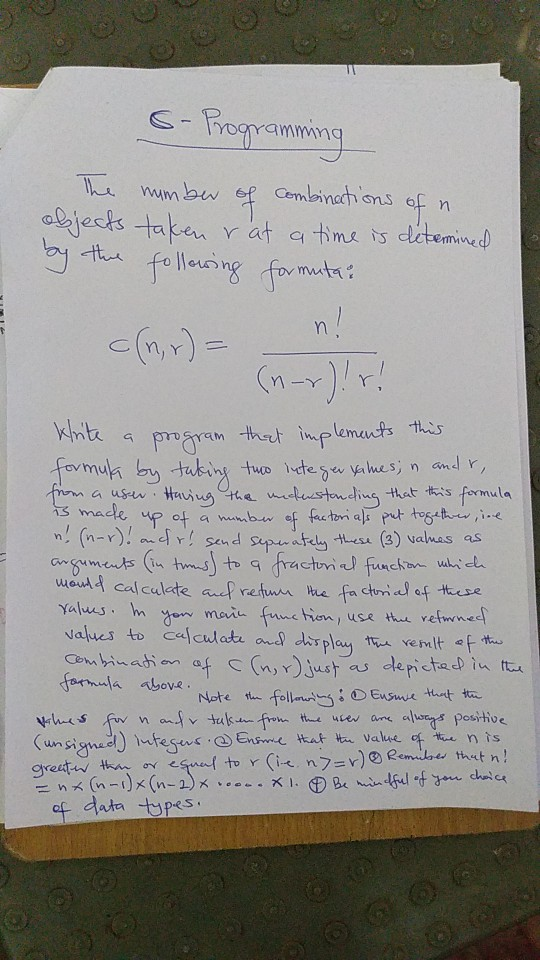 C - Programming
The number of combinations of n
objects taken r at a time is determined
by the following formula:
c(n,r) = n!
(n-r)! r!
Write a program that implements this
formula by taking two integer values; n and r,
from a user. Having the understanding that this formula
is made up of a number of factorials put together, i.e
n! (n-r)! and r! send separately these (3) values as
arguments (in turns) to a fractorial function which
would calculate and return the factorial of these
values. In your main function, use the returned
values to calculate and display the result of the
combination of C(n,r) just as depicted in the
formula above.
Note the following: ① Ensure that the
values for n and r taken from the user are always positive
(unsigned) integers. ② Ensure that the value of the n is
greater than or equal to r (i.e. n>=r) ③ Remember that n!
= n x (n-1) x (n-2) x ..... x 1. ④ Be mindful of your choice
of data types.